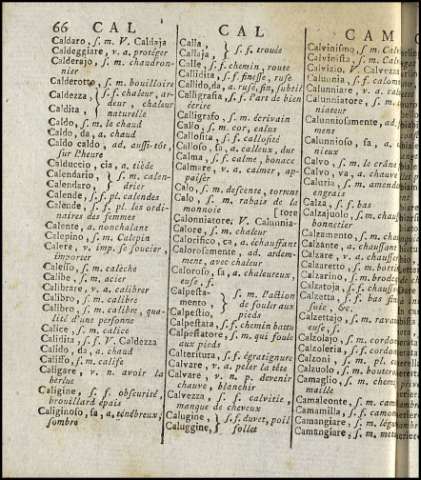 66 CAL
CAL
CAM
Caldaro, s. m. V. Caldaja
Caldeggiare, v. a. protéger
Calderajo, s. m. chaudron-
nier
Calderotto, s. m. bouilloire
Caldezza, } s. f. chaleur, ar-
deur, chaleur
Caldita, naturelle
Caldo, s. m. le chaud
Caldo, da, a. chaud
Caldo caldo, ad. aussi-tôt,
sur l'heure
Calduccio, cia, a. tiéde
Calendario, } s. m. calen-
Calendaro, } drier
Calende, s. f. pl. calendes
Calende, s. f. pl. les ordi-
naires des femmes
Calente, a. nonchalant
Calepino, s. m. Calepin
Calere, v. imp. se soucier,
importer
Calesso, s. m. calèche
Calibe, s. m. acier
Calibrare, v. a. calibrer
Calibro, s. m. calibre
Calibro, s. m. calibre, qua-
lité d'une personne
Calice, s. m. calice
Calidita, s. f. V. Caldezza
Calido, da, a. chaud
Califfo, s. m. calife
Caligare, v. n. avoir la
berlue
Caligine, s. f. obscurité,
brouillard épais
Caliginoso, sa, a. ténébreux,
sombre
Calla,
Callaja, } s. f. trouée
Calle, s. f. chemin, route
Callidita, s. f. finesse, ruse
Callido, da, a. rusé, fin, subtil
Calligrafia, s. f. l'art de bien
écrire
Calligrafo, s. m. écrivain
Callo, s. m. cor, calus
Callosita, s. f. callosité
Calloso, sa, a. calleux, dur
Calma, s. f. calme, bonace
Calmare, v. a. calmer, ap-
paiser
Calo, s. m. descente, torrent
Calo, s. m. rabais de la
monnoie [tore
Calonniatore, V. Calunnia-
Calore, s. m. chaleur
Calorifico, ca, a. échauffant
Calorosamente, ad. ardem-
ment, avec chaleur
Caloroso, sa, a. chaleureux,
euse, f.
Calpesta- } s. m. l'action
mento, de fouler aux
Calpestio, pieds
Calpestata, s. f. chemin battu
Calpestatore, s. m. qui foule
aux pieds
Calteritura, s. f. égratignure
Calvare, v. a. peler la tête
Calvare, v. n. p. devenir
chauve, blanchir
Calvezza, s. f. calvitie,
manque de cheveux
Calugine, } s. f. duvet, poil
Caluggine, } follet
Calvinismo, s. m.
Calvinista, s. m.
Calvizio, V. Calvezza
Calunnia, s. f.
Calunniare, v. a.
Calunniatore, s. m.
niateur
Calunniosamente, ad.
ment
Calunnioso, sa, a.
nieux
Calvo, s. m. le crâne
Calvo, va, a. chauve
Caluria, s. f.
engrais
Calza, s. f. bas
Calzajuolo, s. m.
bonnetier
Calzamento, s. m.
Calzante, a.
Calzare, v. a.
Calzaretto, s. m.
Calzarino, s. m.
Calzatoja, s. f.
Calzetta, s. f. bas
soie, &c.
Calzettajo, s. m.
euse, f.
Calzolajo, s. m.
Calzoleria, s. f.
Calzoni, s. m. pl.
Calzuolo, s. m.
Camaglio, s. m.
maille
Camaleonte, s. m.
Camamilla, s. f.
Camangiare, s. m.
Camangiare, s. m.